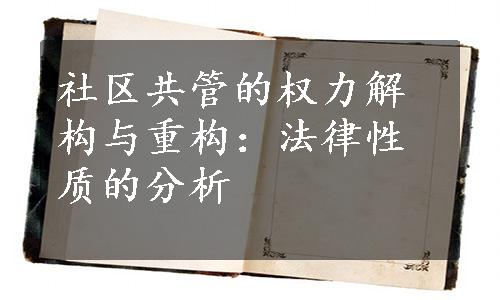 社区共管的权力解
构与重构：法律性
质的分析